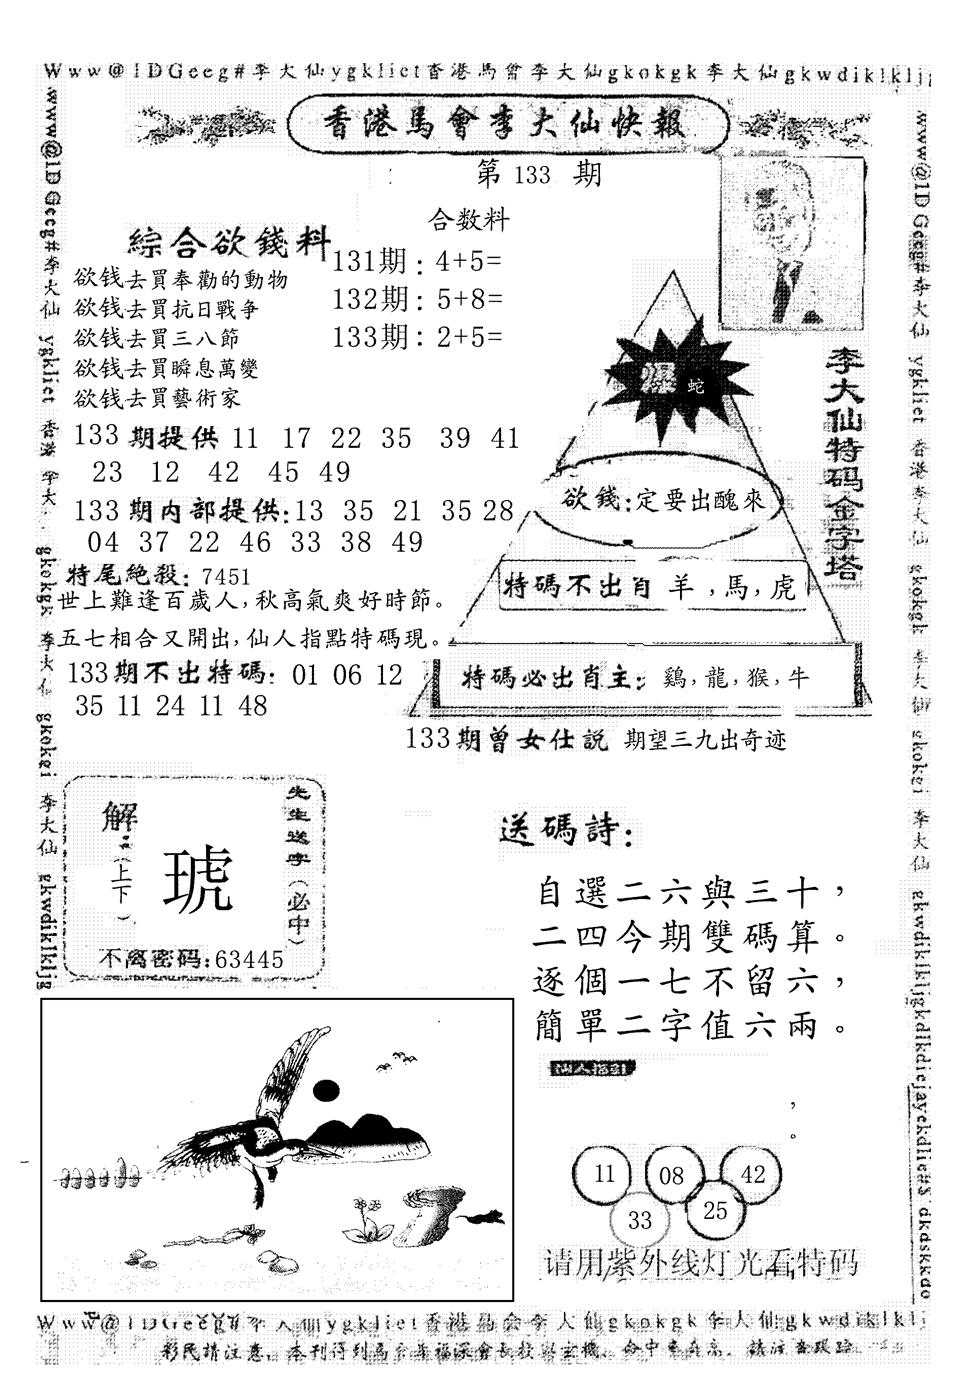 Www@1DGeeg#李大仙ygkliet香港馬會李大仙gkokgk李大仙gkwdiklkljg
香港馬會李大仙快報
第 133 期
合数料
綜合欲錢料
131期: 4+5=
132期: 5+8=
133期: 2+5=
欲钱去買奉勸的動物
欲钱去買抗日戰争
欲钱去買三八節
欲钱去買瞬息萬變
欲钱去買藝術家
133 期提供 11 17 22 35 39 41
23 12 42 45 49
133 期内部提供:13 35 21 35 28
04 37 22 46 33 38 49
特尾絶殺: 7451
世上難逢百歲人,秋高氣爽好時節。
五七相合又開出,仙人指點特碼現。
133期不出特碼: 01 06 12
35 11 24 11 48
李大仙特码金字塔
爆 蛇
欲錢:定要出醜來
特碼不出肖 羊,馬,虎
特碼必出肖主: 鷄,龍,猴,牛
133期曾女仕説 期望三九出奇迹
解
(上下)
琥
先生送字(必中)
不离密码:63445
送碼詩:
自選二六與三十,
二四今期雙碼算。
逐個一七不留六,
簡單二字值六兩。
仙人指引
,
。
11 08 42
33 25
请用紫外线灯光看特码
www@1DGeeg#李大仙 ygkliet 香港 李大 gkokgk 李大仙 gkokei 李大仙 gkwdiklkljg
www@1DGeeg#李大仙 ygkliet 香港李大仙 gkokgk 李大仙 gkokei 李大仙
Www@1DGeeg#李大仙ygkliet香港馬会李大仙gkokgk李大仙gkwdiklklj
彩民請注意,本刊得到馬会